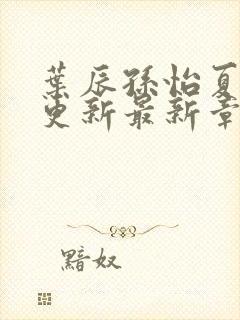 葉辰孫怡夏
更新最新章
黯奴